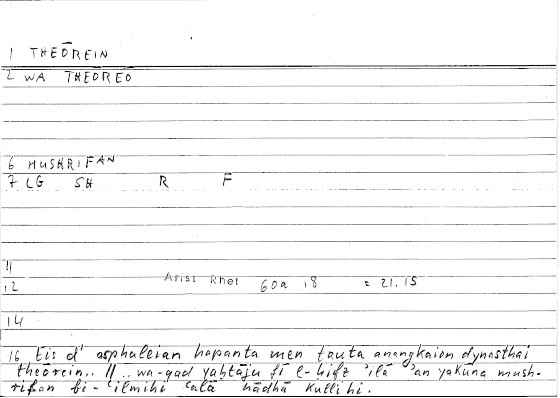 1 THEŌREIN
2 WA THEŌREŌ
6 MUSHRIFAN
7 LG SH R F
11
12 Arist Rhet 60a 18 = 21.15
14
16 Eis d' asphaleian hapanta men tauta anangkaion dynasthai
theōrein.. // .. wa-qad yaḥtāju fī l-ḥifẓ 'ilā 'an yakūna mush-
rifan bi-'ilmihi ʿalā hādhā kullihi.